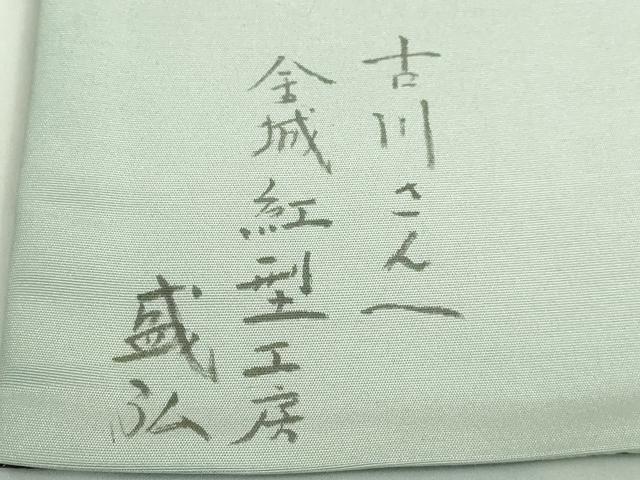 古川さんへ
金城紅型工房
盛弘